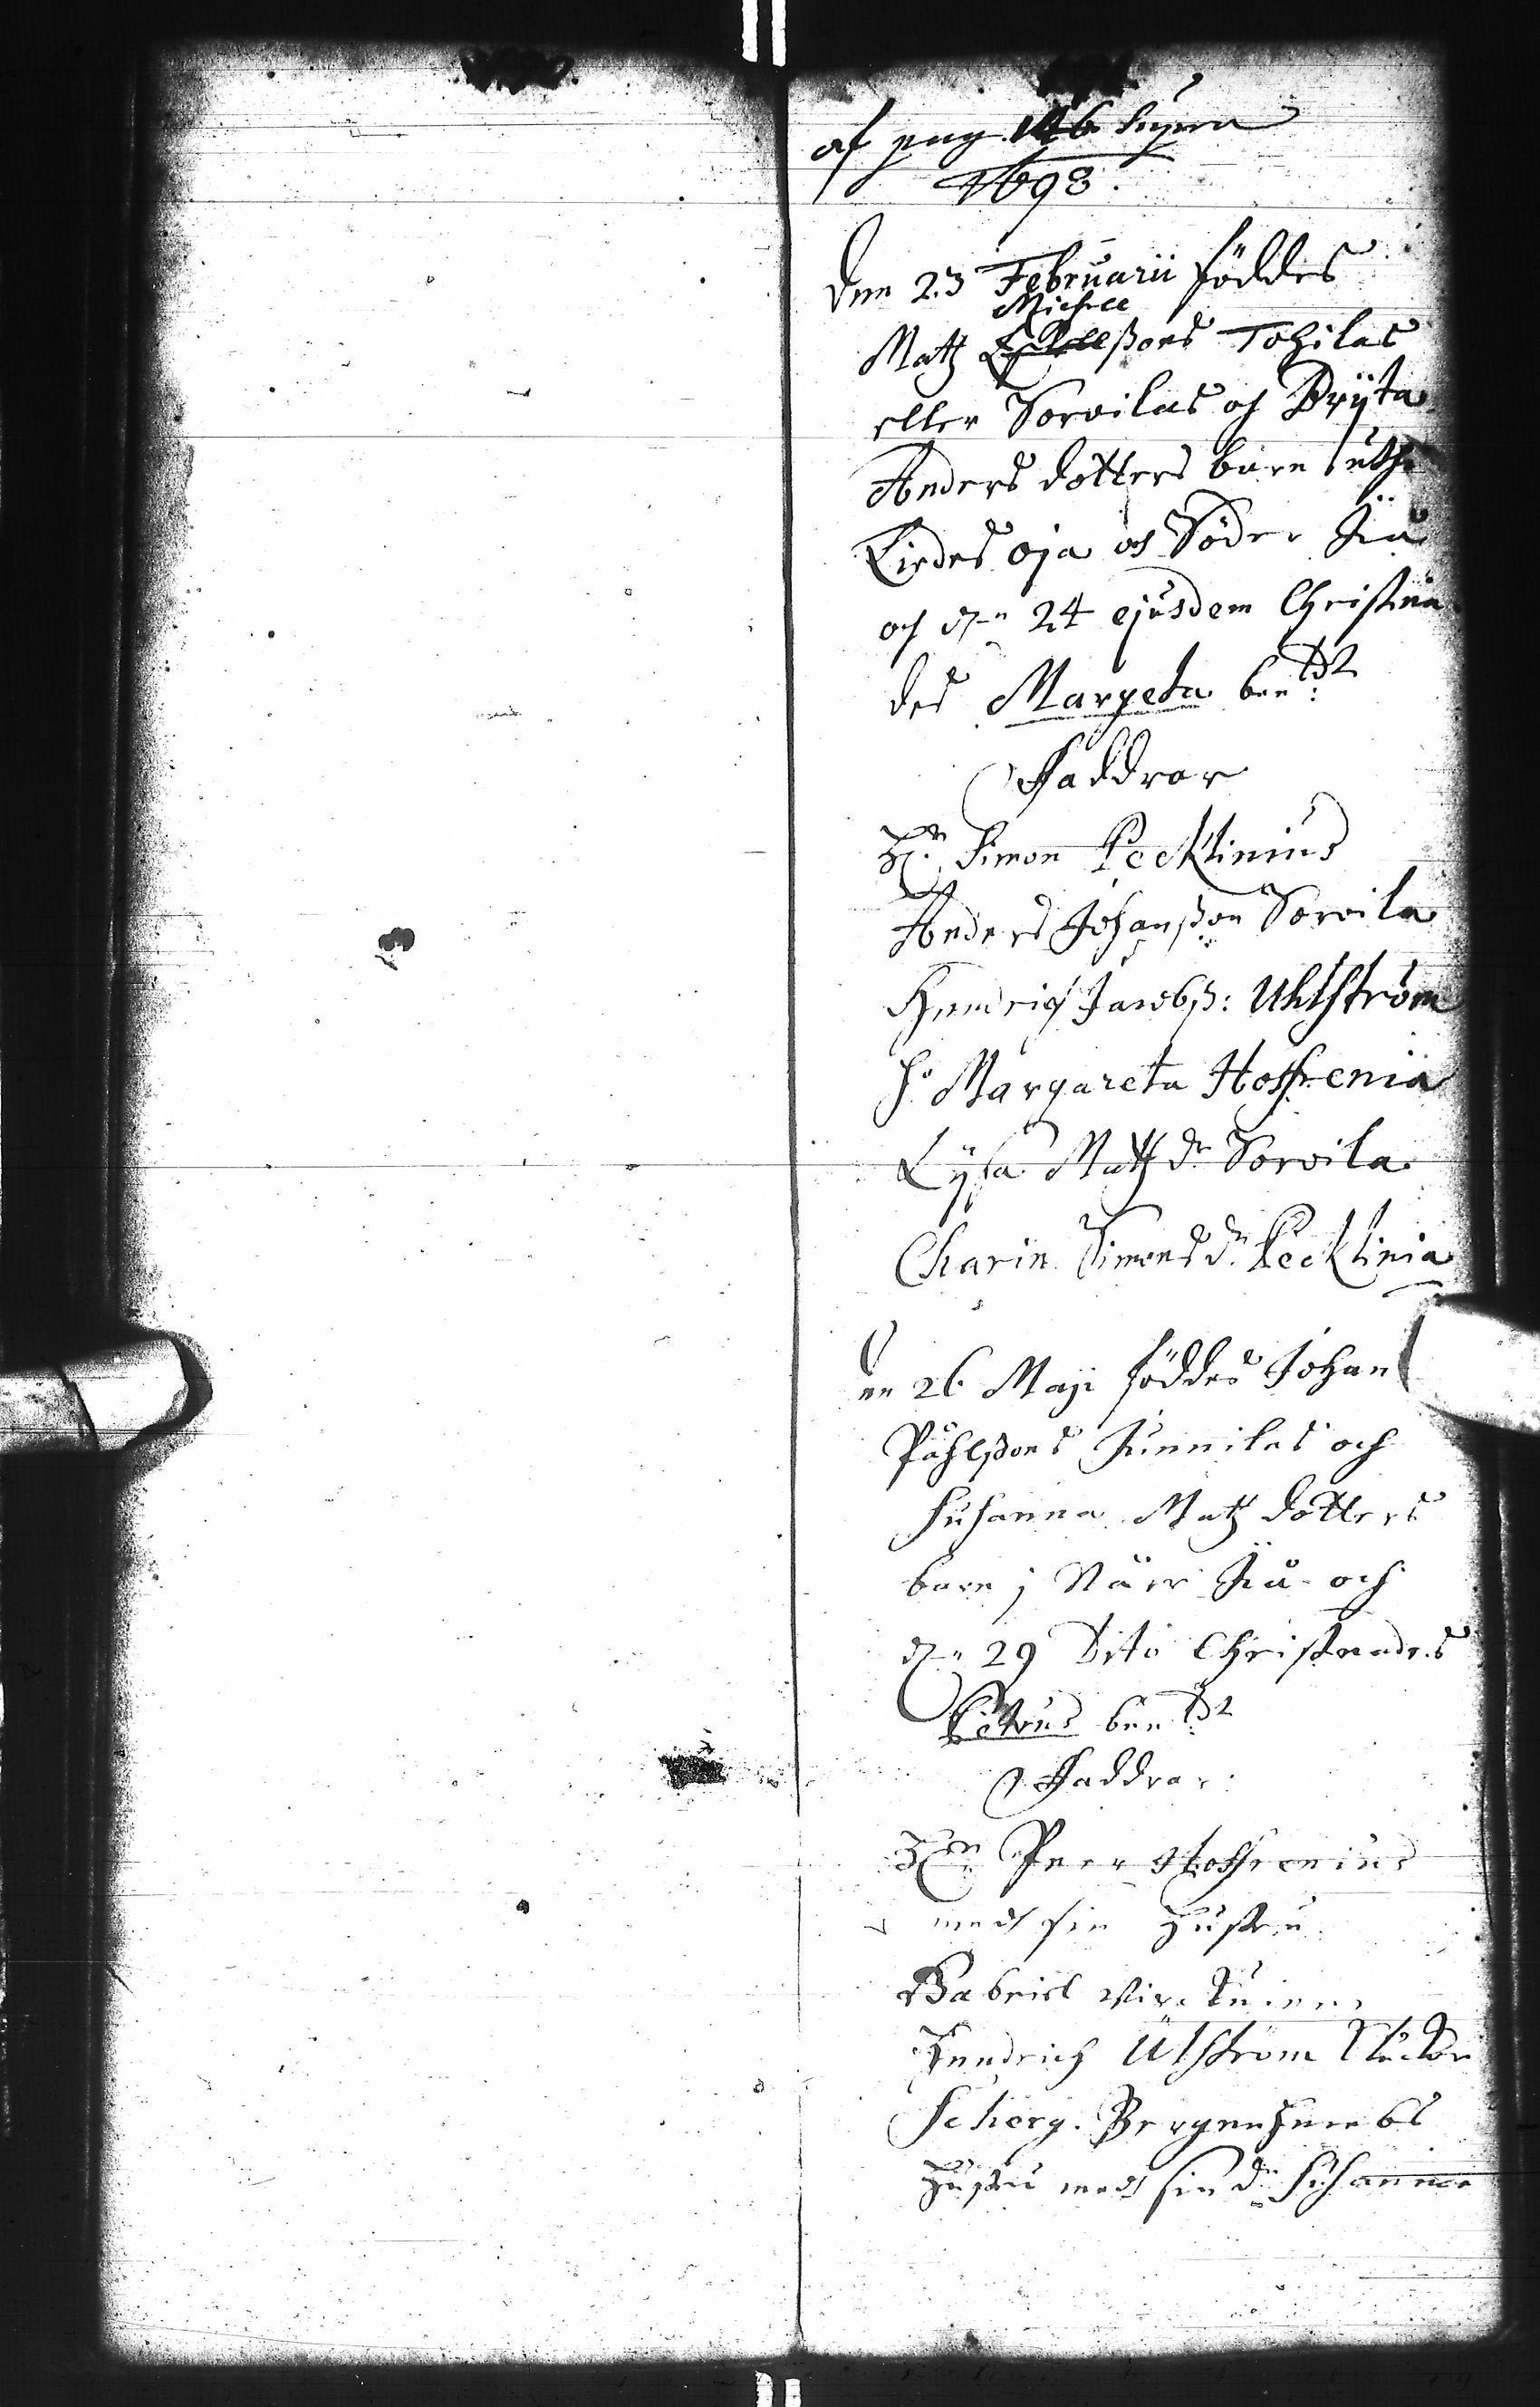 af pag. 146 supra
1698.
Den 23 Februarii föddes
Michell
Matz Eskellßons Tohilas
eller Sorvilas och Brijta
Anders dotters barn uthi
Lindes oja och Söder Jiu
och den 24 ejusdem Christna
des Margeta ben:d
Faddrar
Hr. Simon Pecklinius
Anders Johanßon Sorvila
Hendrich Jacobß: Uhlström
h: Margareta Hoffrenia
Lijsa Matz dr Sorvila
Charin Simons dr. Pecklinia
Den 26 Maji föddes Johan
Påhlßons Junnilas och
Susanna Matz dotters
barn j När Jiu och
den 29 Dito Christnades
Petrus ben:d
Faddrar
Hr: Peer Hoffrenius
medh sin hustru
Gabriel
Hendrich Ulström
Scherg. Bergenhiembs
hustru medh sin dr Susanna